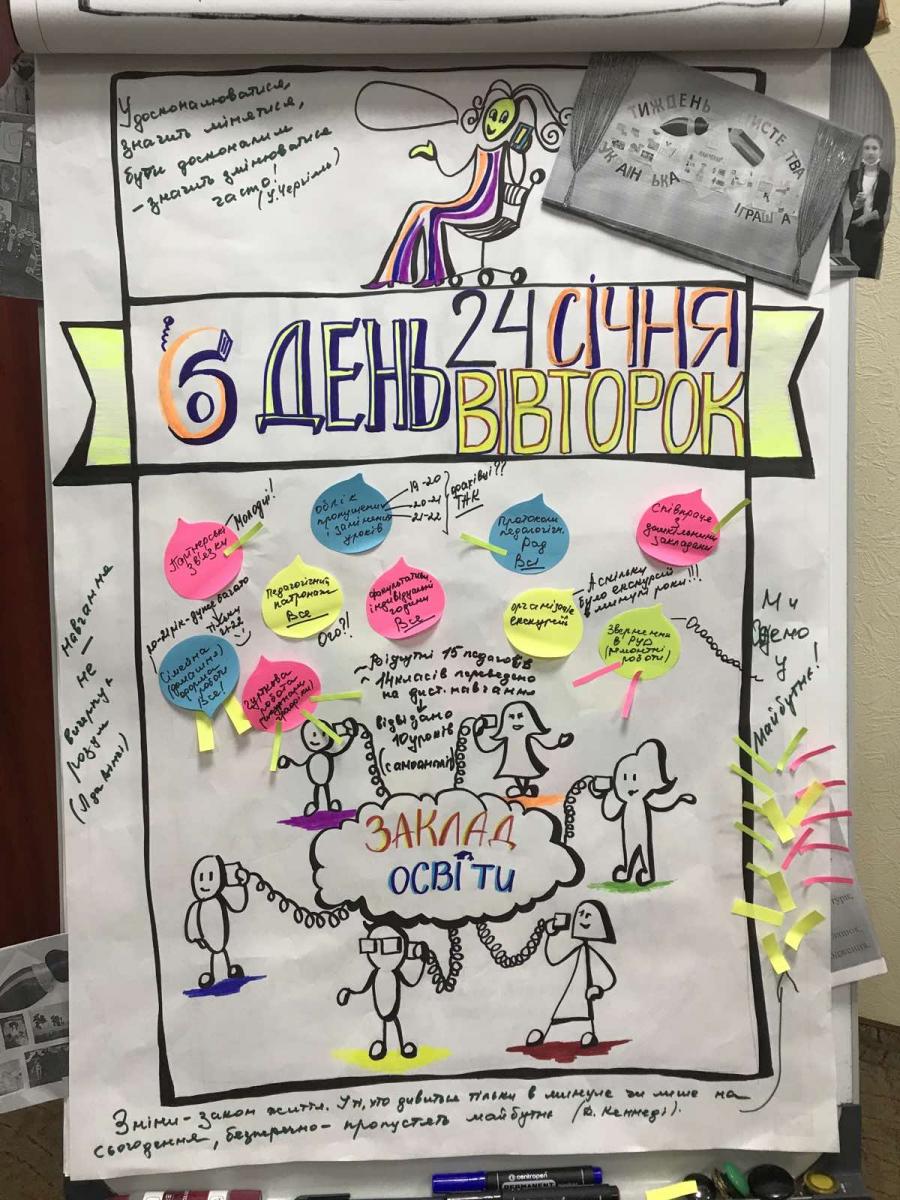 Удосконалюватися,
значить мінятися,
бути досконалим
- значить змінюватися
часто!
(У. Черчіль)
ТИЖДЕНЬ
ІГРАШ
6 ДЕНЬ
24 СІЧНЯ
ВІВТОРОК
Партнерські
зв'язки
Молодці!
Облік
пропущених
і замінених
уроків
19-20
20-21
21-22
фахівці??
ТАК
Протоколи
педагогічн.
Рад
Всі
Співпраця
з
дошкільними
закладами
Педагогічний
патронаж
Все
Ого?!
Факультативи,
індивідуальні
години
Все
Організація
екскурсій
А скільки
було екскурсій
в минулі роки!!!
Звернення
в РУО
(ремонтні
роботи)
Огоооо
20-21рік-дуже багато
тільки
21-22
Сімейна
(домашня)
форма
роботи
Все!
Гурткова
робота
графіки)
~ Відсутні 15 педагогів
~ 14 класів переведено
на дист. навчання
відвідано
10 уроків
(самоаналіз)
ЗАКЛАД
ОСВІТИ
Навчання
не
вичерпує
розум
(Л да Вінчі)
Ми
йдемо
у
майбутнє!
Зміни - закон життя. У ті, хто дивиться тільки в минуле чи лише на
сьогодення, безперечно - пропустять майбутнє (Д. Кеннеді).
centropen
PERMANENT